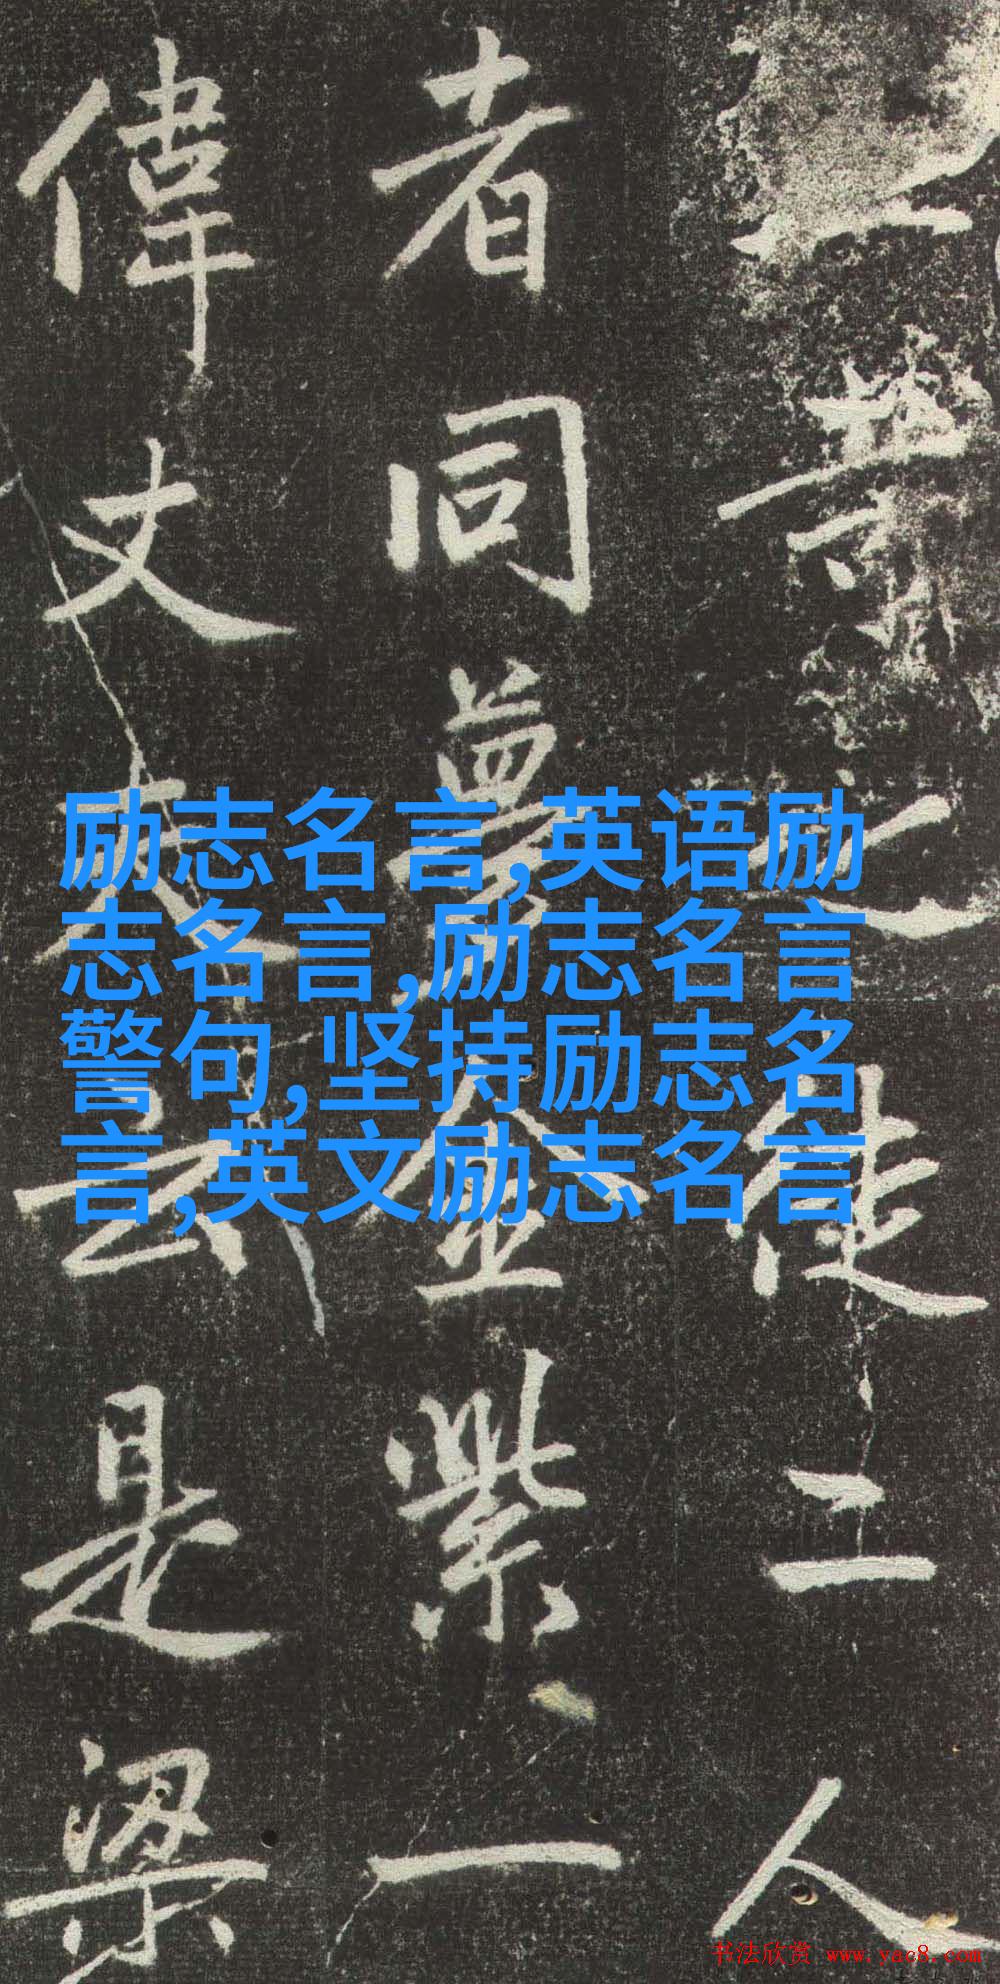 之徒二人
者同夢金紫一
偉丈夫云是梁
励志名言,英语励
志名言,励志名言
警句,坚持励志名
言,英文励志名言
书法欣赏 www.yac8.com